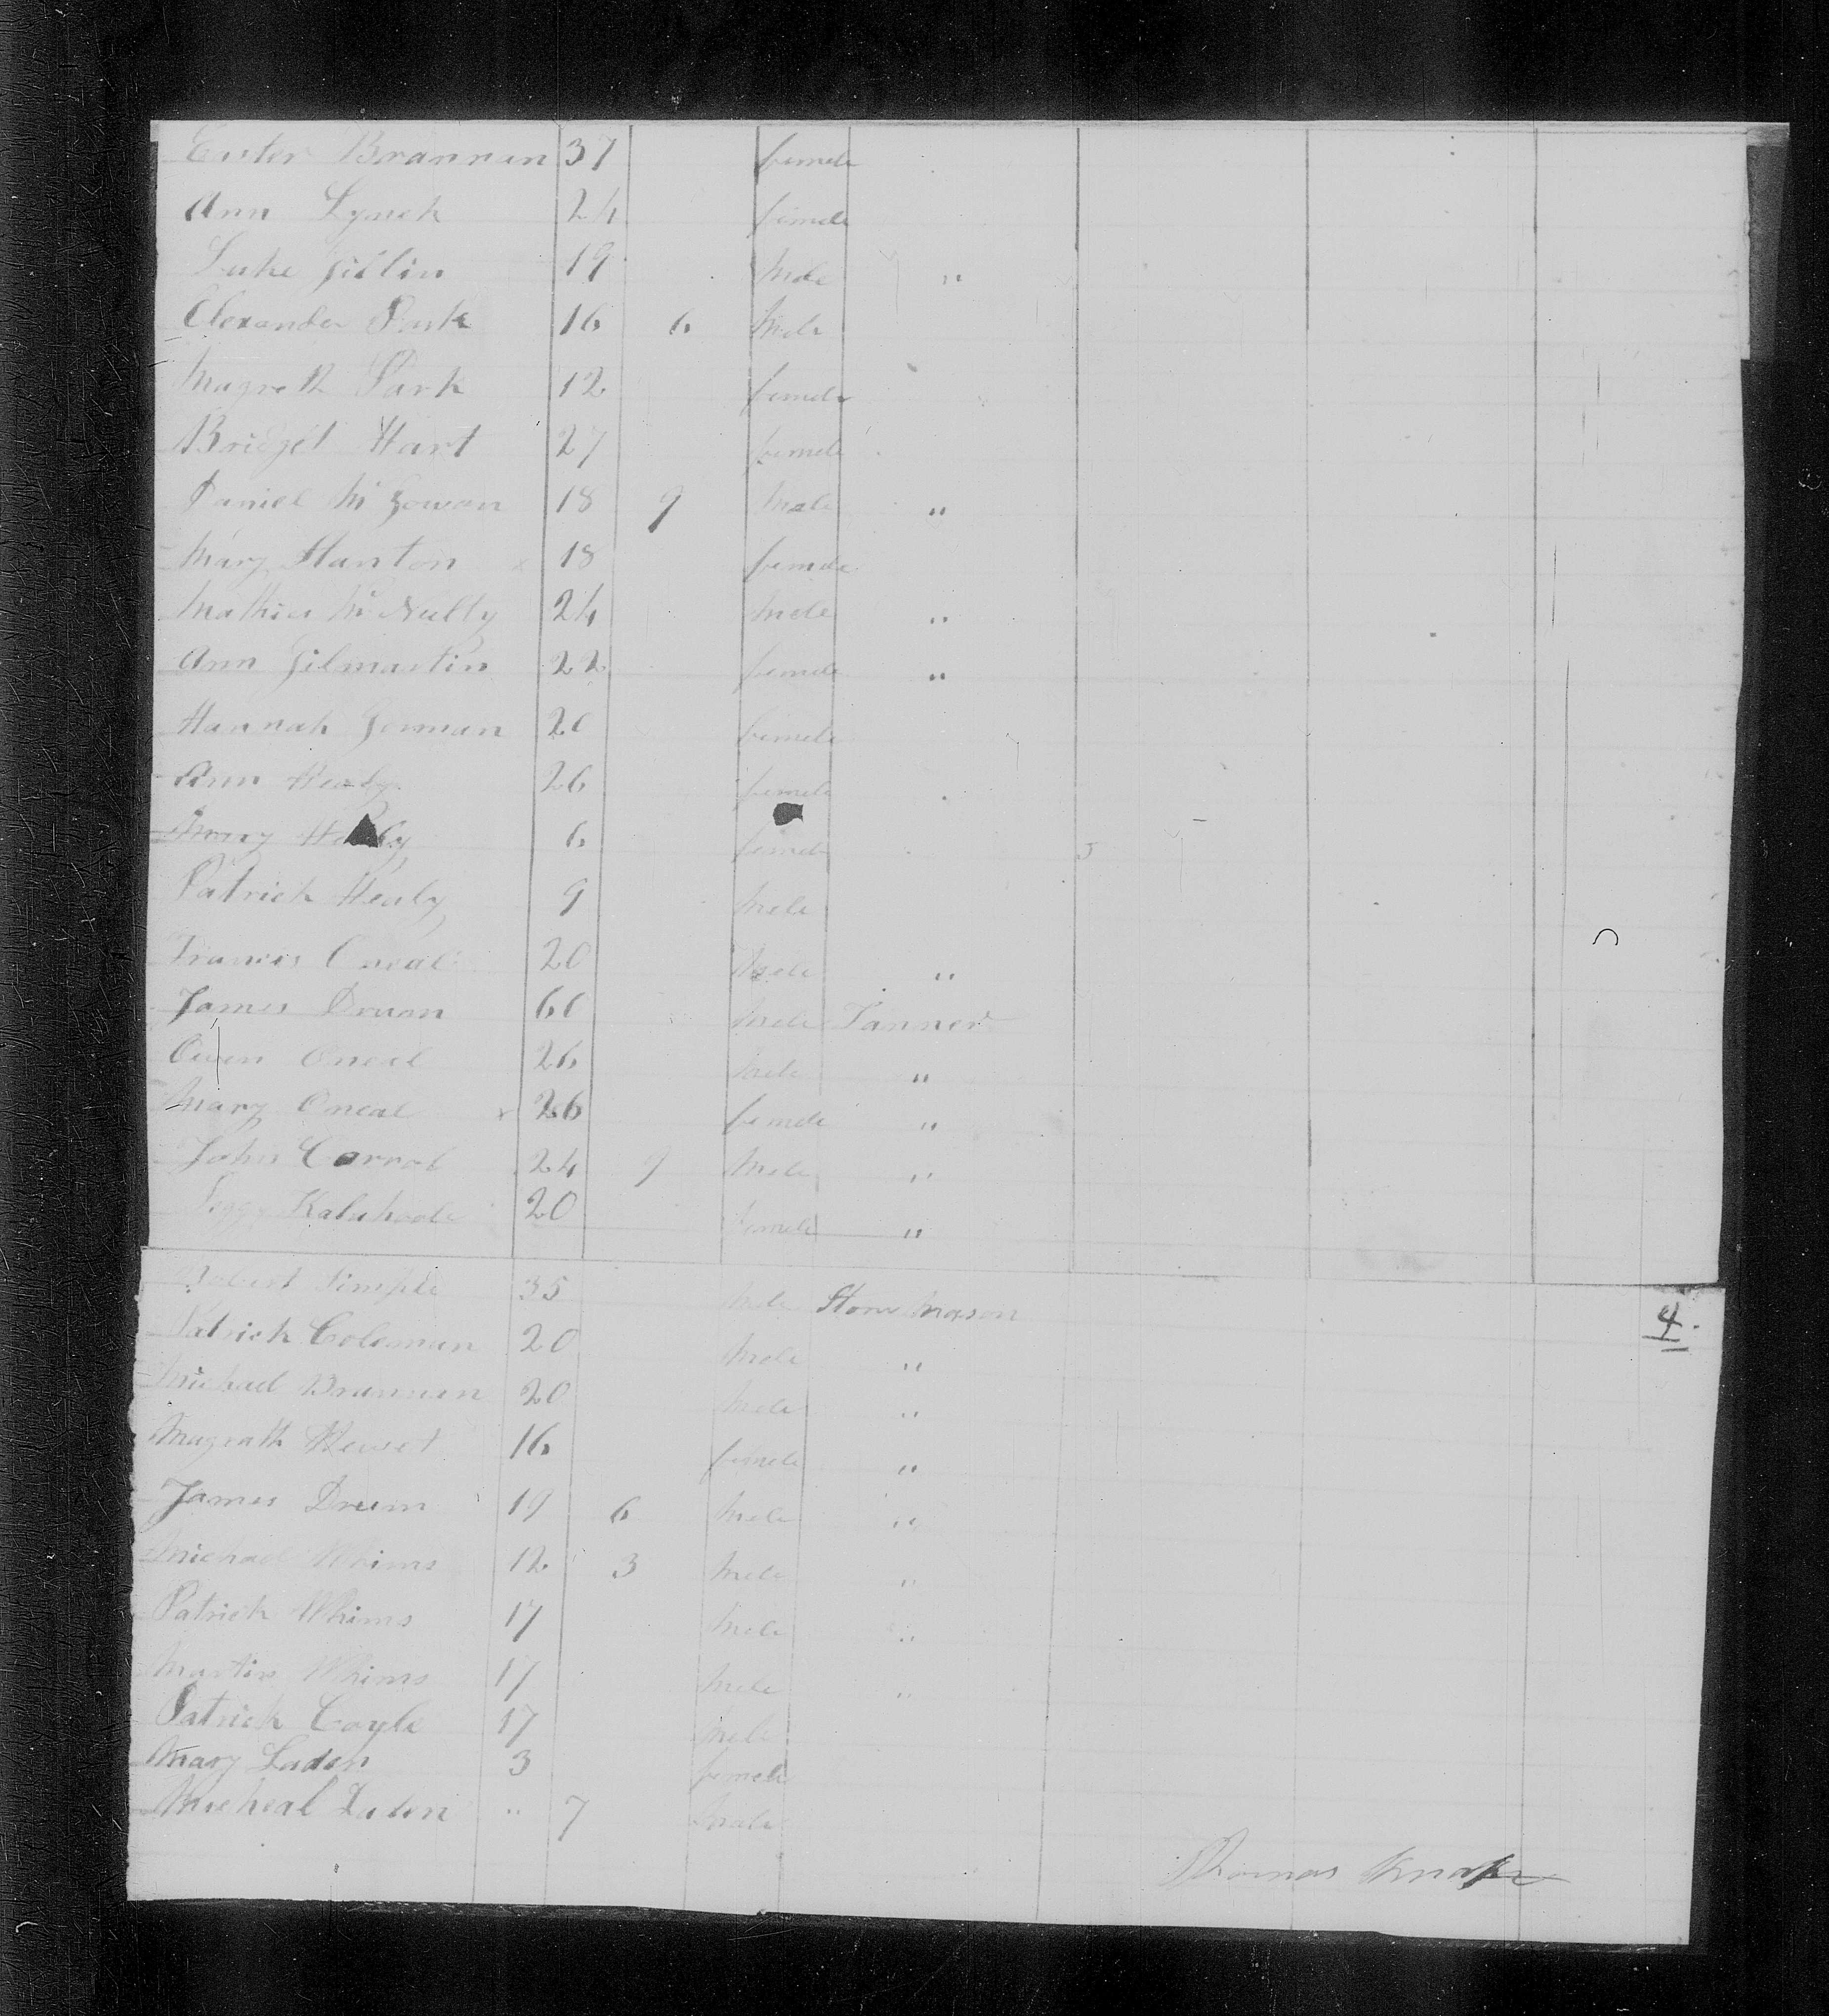 Ester Brannan 37 female
Ann Lynch 24 female
Luke Gillin 19 Male "
Alexander Park 16 6 Male
Magreth Park 12 female
Bridget Hart 27 female
Daniel McGowan 18 9 Male "
Mary Hanton x 18 female
Mathies McNulty 24 Male "
Ann Gilmartin 22 female "
Hannah Gorman 20 female
Ann Healy 26 female
Mary Healy 6 female
Patrick Healy 9 Male
Frances Oneal 20 Male "
James Druan 60 Male Tanner
Owen Oneal 26 Male "
Mary Oneal x 26 female "
John Carrol 24 9 Male "
20 female "
Robert Simple 35 Male Stone Mason
4.
Patrick Coleman 20 Male "
Michael Brannan 20 Male "
Magrath 16 female "
James Drum 19 6 Male "
Michael Whims 12 3 Male "
Patrick Whims 17 Male "
Martin Whims 17 Male "
Patrick Coyle 17 Male
Mary Laden 3 female
Micheal Laden " 7 Male
Thomas